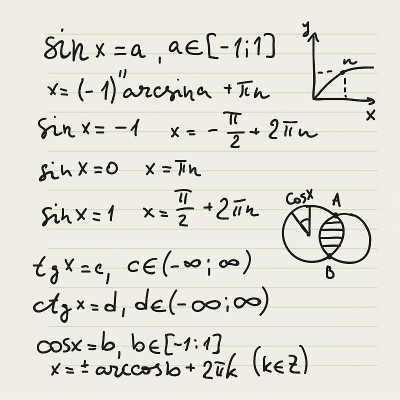 sin x = a , a ∈ [-1;1]
x = (-1)ⁿ arcsin a + πn
sin x = -1   x = - π/2 + 2πn
sin x = 0   x = πn
sin x = 1   x = π/2 + 2πn
tg x = c, c ∈ (-∞; ∞)
ctg x = d, d ∈ (-∞; ∞)
cosx = b, b ∈ [-1:1]
x = ± arccosb + 2πk (k ∈ Z)
y
n
x
Cosx
A
B